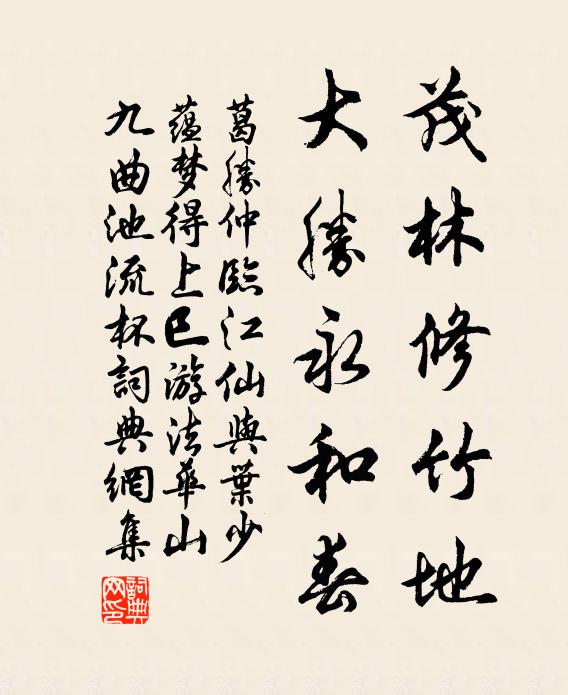 茂林修竹地
大勝永和春
葛勝仲臨江仙與葉少
蕴梦得上巳游法華山
九曲池流杯詞典網集
詞典網印